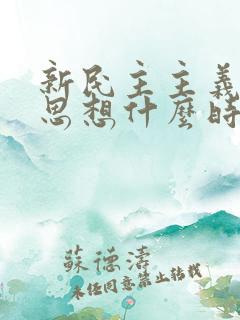 新民主主義
思想什麼時
蘇德濤
未经同意禁止转载